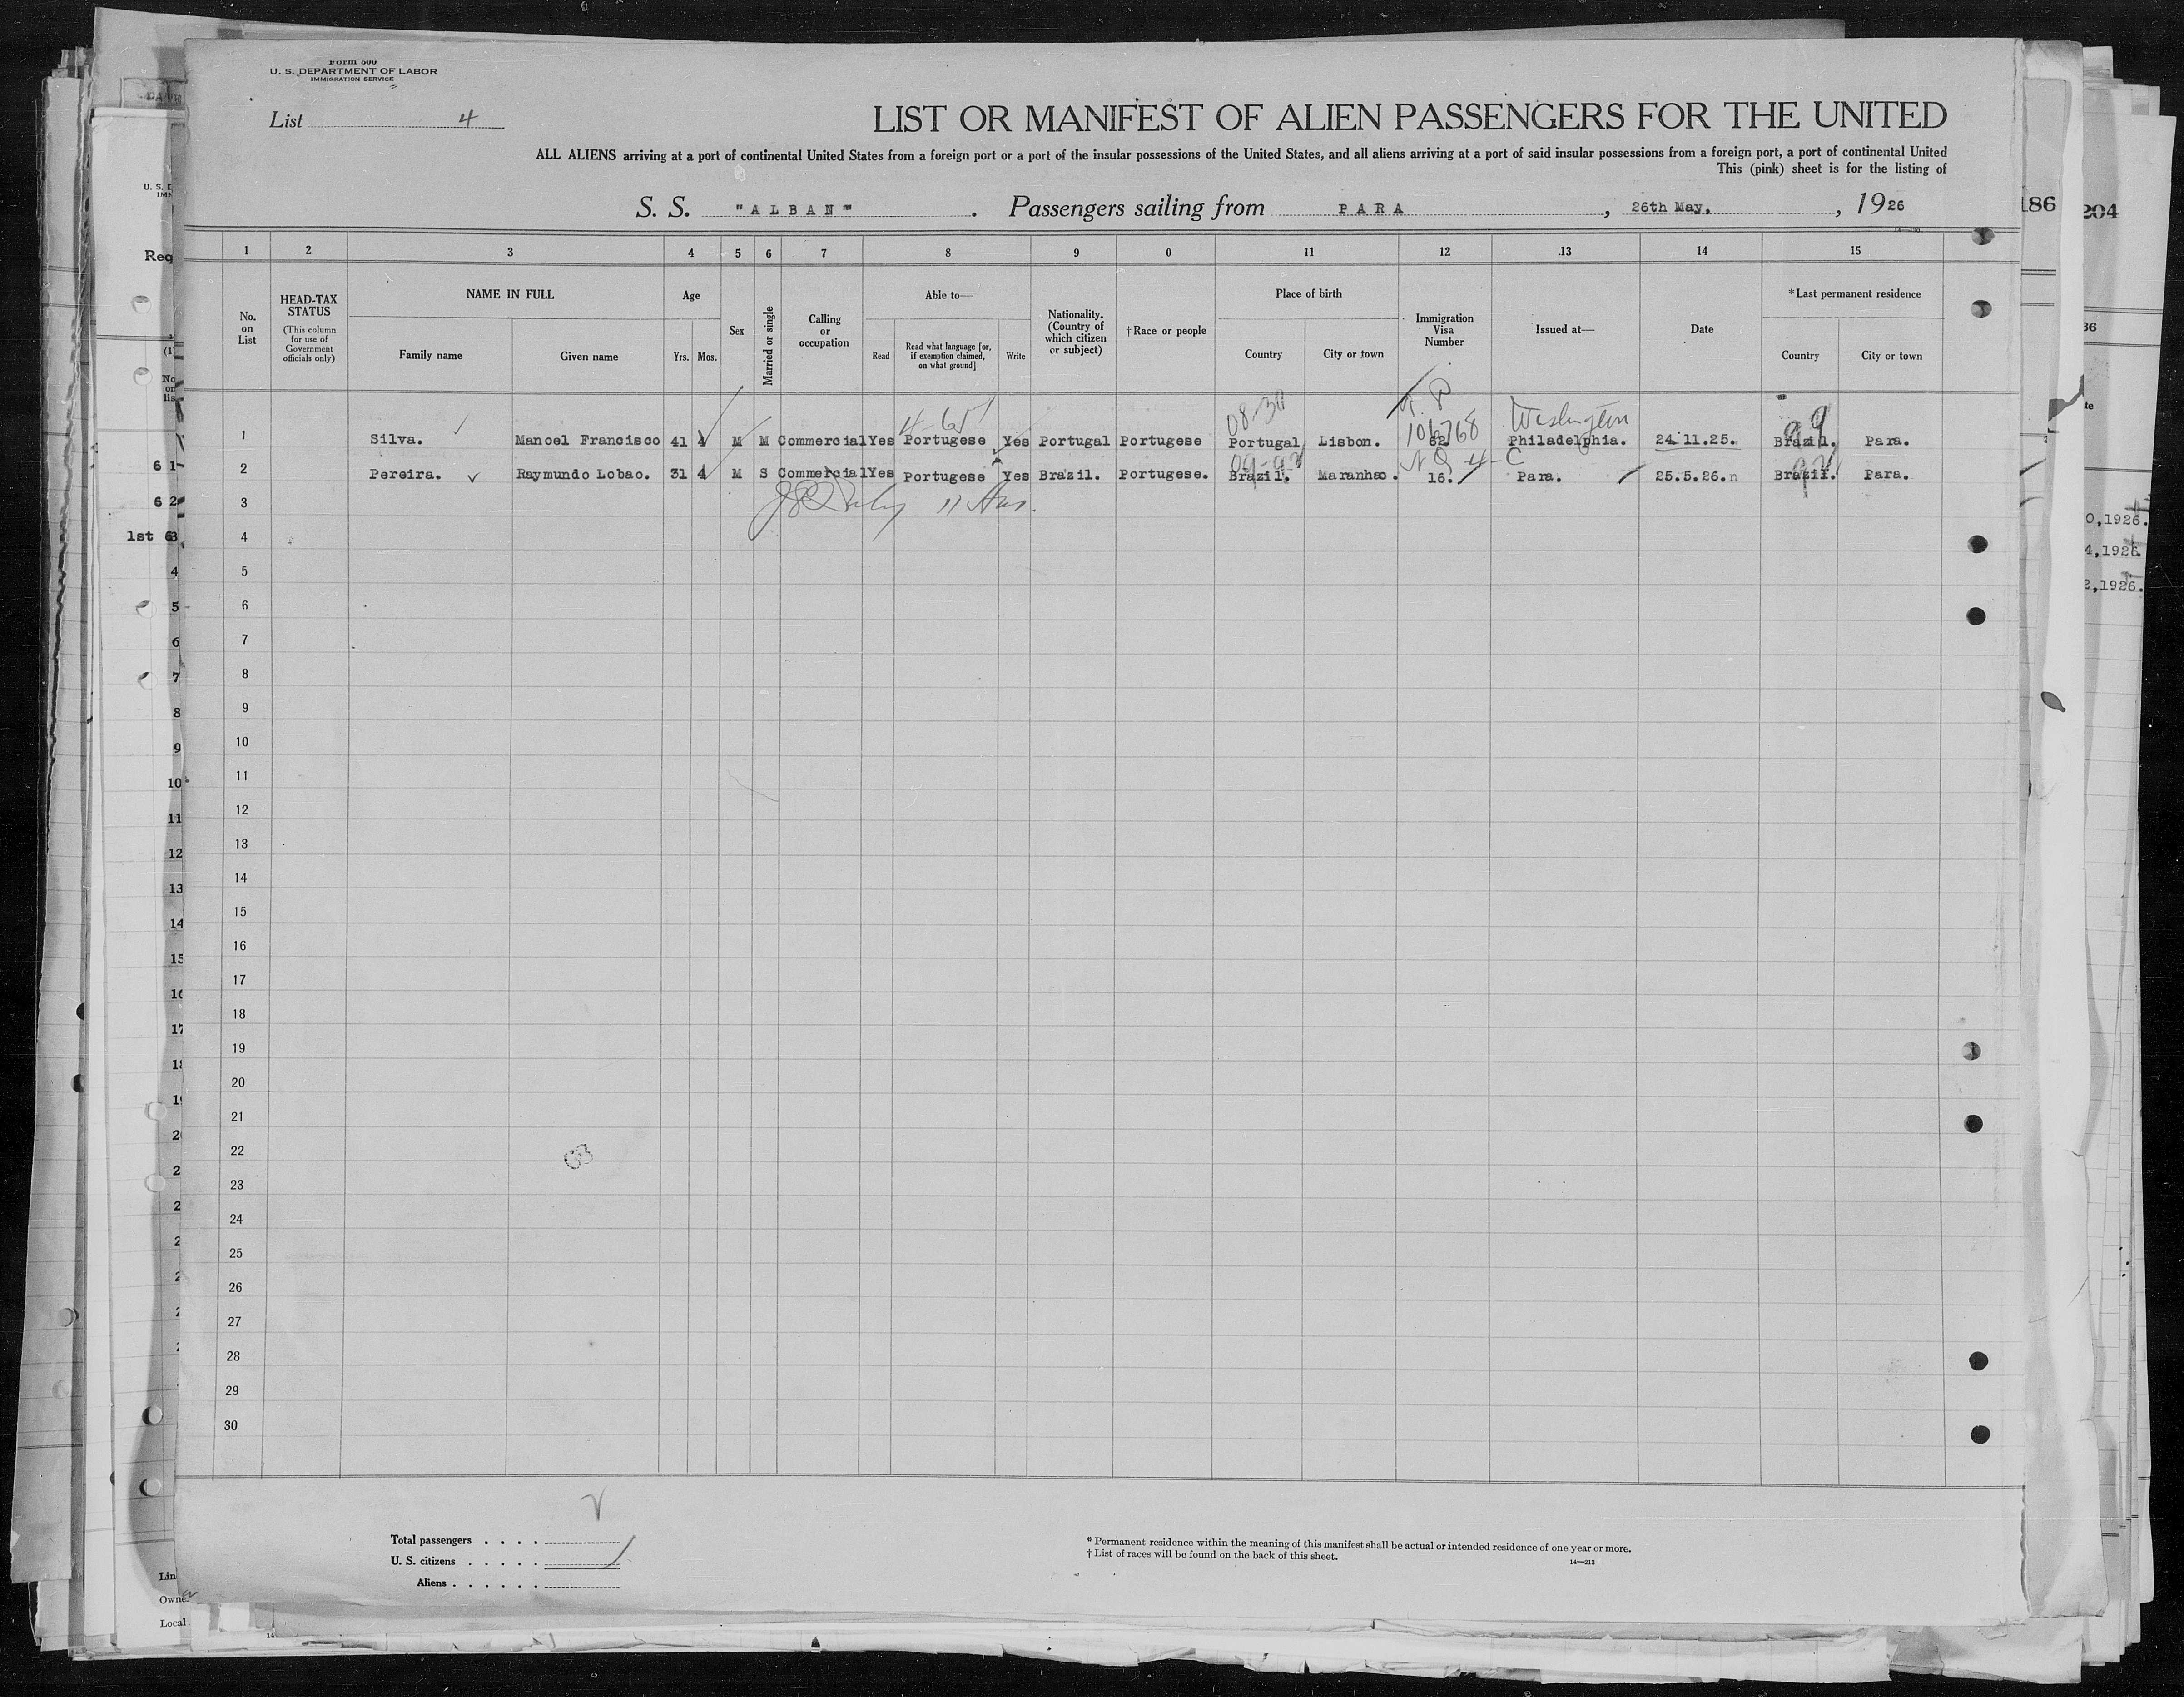 Form 500
U. S. DEPARTMENT OF LABOR
IMMIGRATION SERVICE
List 4
LIST OR MANIFEST OF ALIEN PASSENGERS FOR THE UNITED
ALL ALIENS arriving at a port of continental United States from a foreign port or a port of the insular possessions of the United States, and all aliens arriving at a port of said insular possessions from a foreign port, a port of continental United
This (pink) sheet is for the listing of
S. S. "ALBAN" . Passengers sailing from PARA , 26th May, , 1926
186
204
1 2 3 4 5 6 7 8 9 0 11 12 .13 14 15
No. on List
HEAD-TAX STATUS
(This column for use of Government officials only)
NAME IN FULL
Family name Given name
Age
Yrs. Mos.
Sex
Married or single
Calling or occupation
Able to—
Read
Read what language [or, if exemption claimed, on what ground]
Write
Nationality. (Country of which citizen or subject)
† Race or people
Place of birth
Country City or town
Immigration Visa Number
Issued at—
Date
* Last permanent residence
Country City or town
08-30 101768 Washington 99
1 Silva. Manoel Francisco 41 4 M M Commercial Yes Portugese Yes Portugal Portugese Portugal Lisbon. 62 Philadelphia. 24.11.25. Brazil. Para.
NQ 4-C
2 Pereira. Raymundo Lobao. 31 4 M S Commercial Yes Portugese Yes Brazil. Portugese. Brazil. Maranhao. 16. Para. 25.5.26. Brazil. Para.
3
4
5
6
7
8
9
10
11
12
13
14
15
16
17
18
19
20
21
22
23
24
25
26
27
28
29
30
63
Total passengers . . . .
U. S. citizens . . . . .
Aliens . . . . . .
* Permanent residence within the meaning of this manifest shall be actual or intended residence of one year or more.
† List of races will be found on the back of this sheet.
14—213
U. S. D
Req
1st 63
0,1926.
4,1926.
2,1926.
Lin
Owne
Local